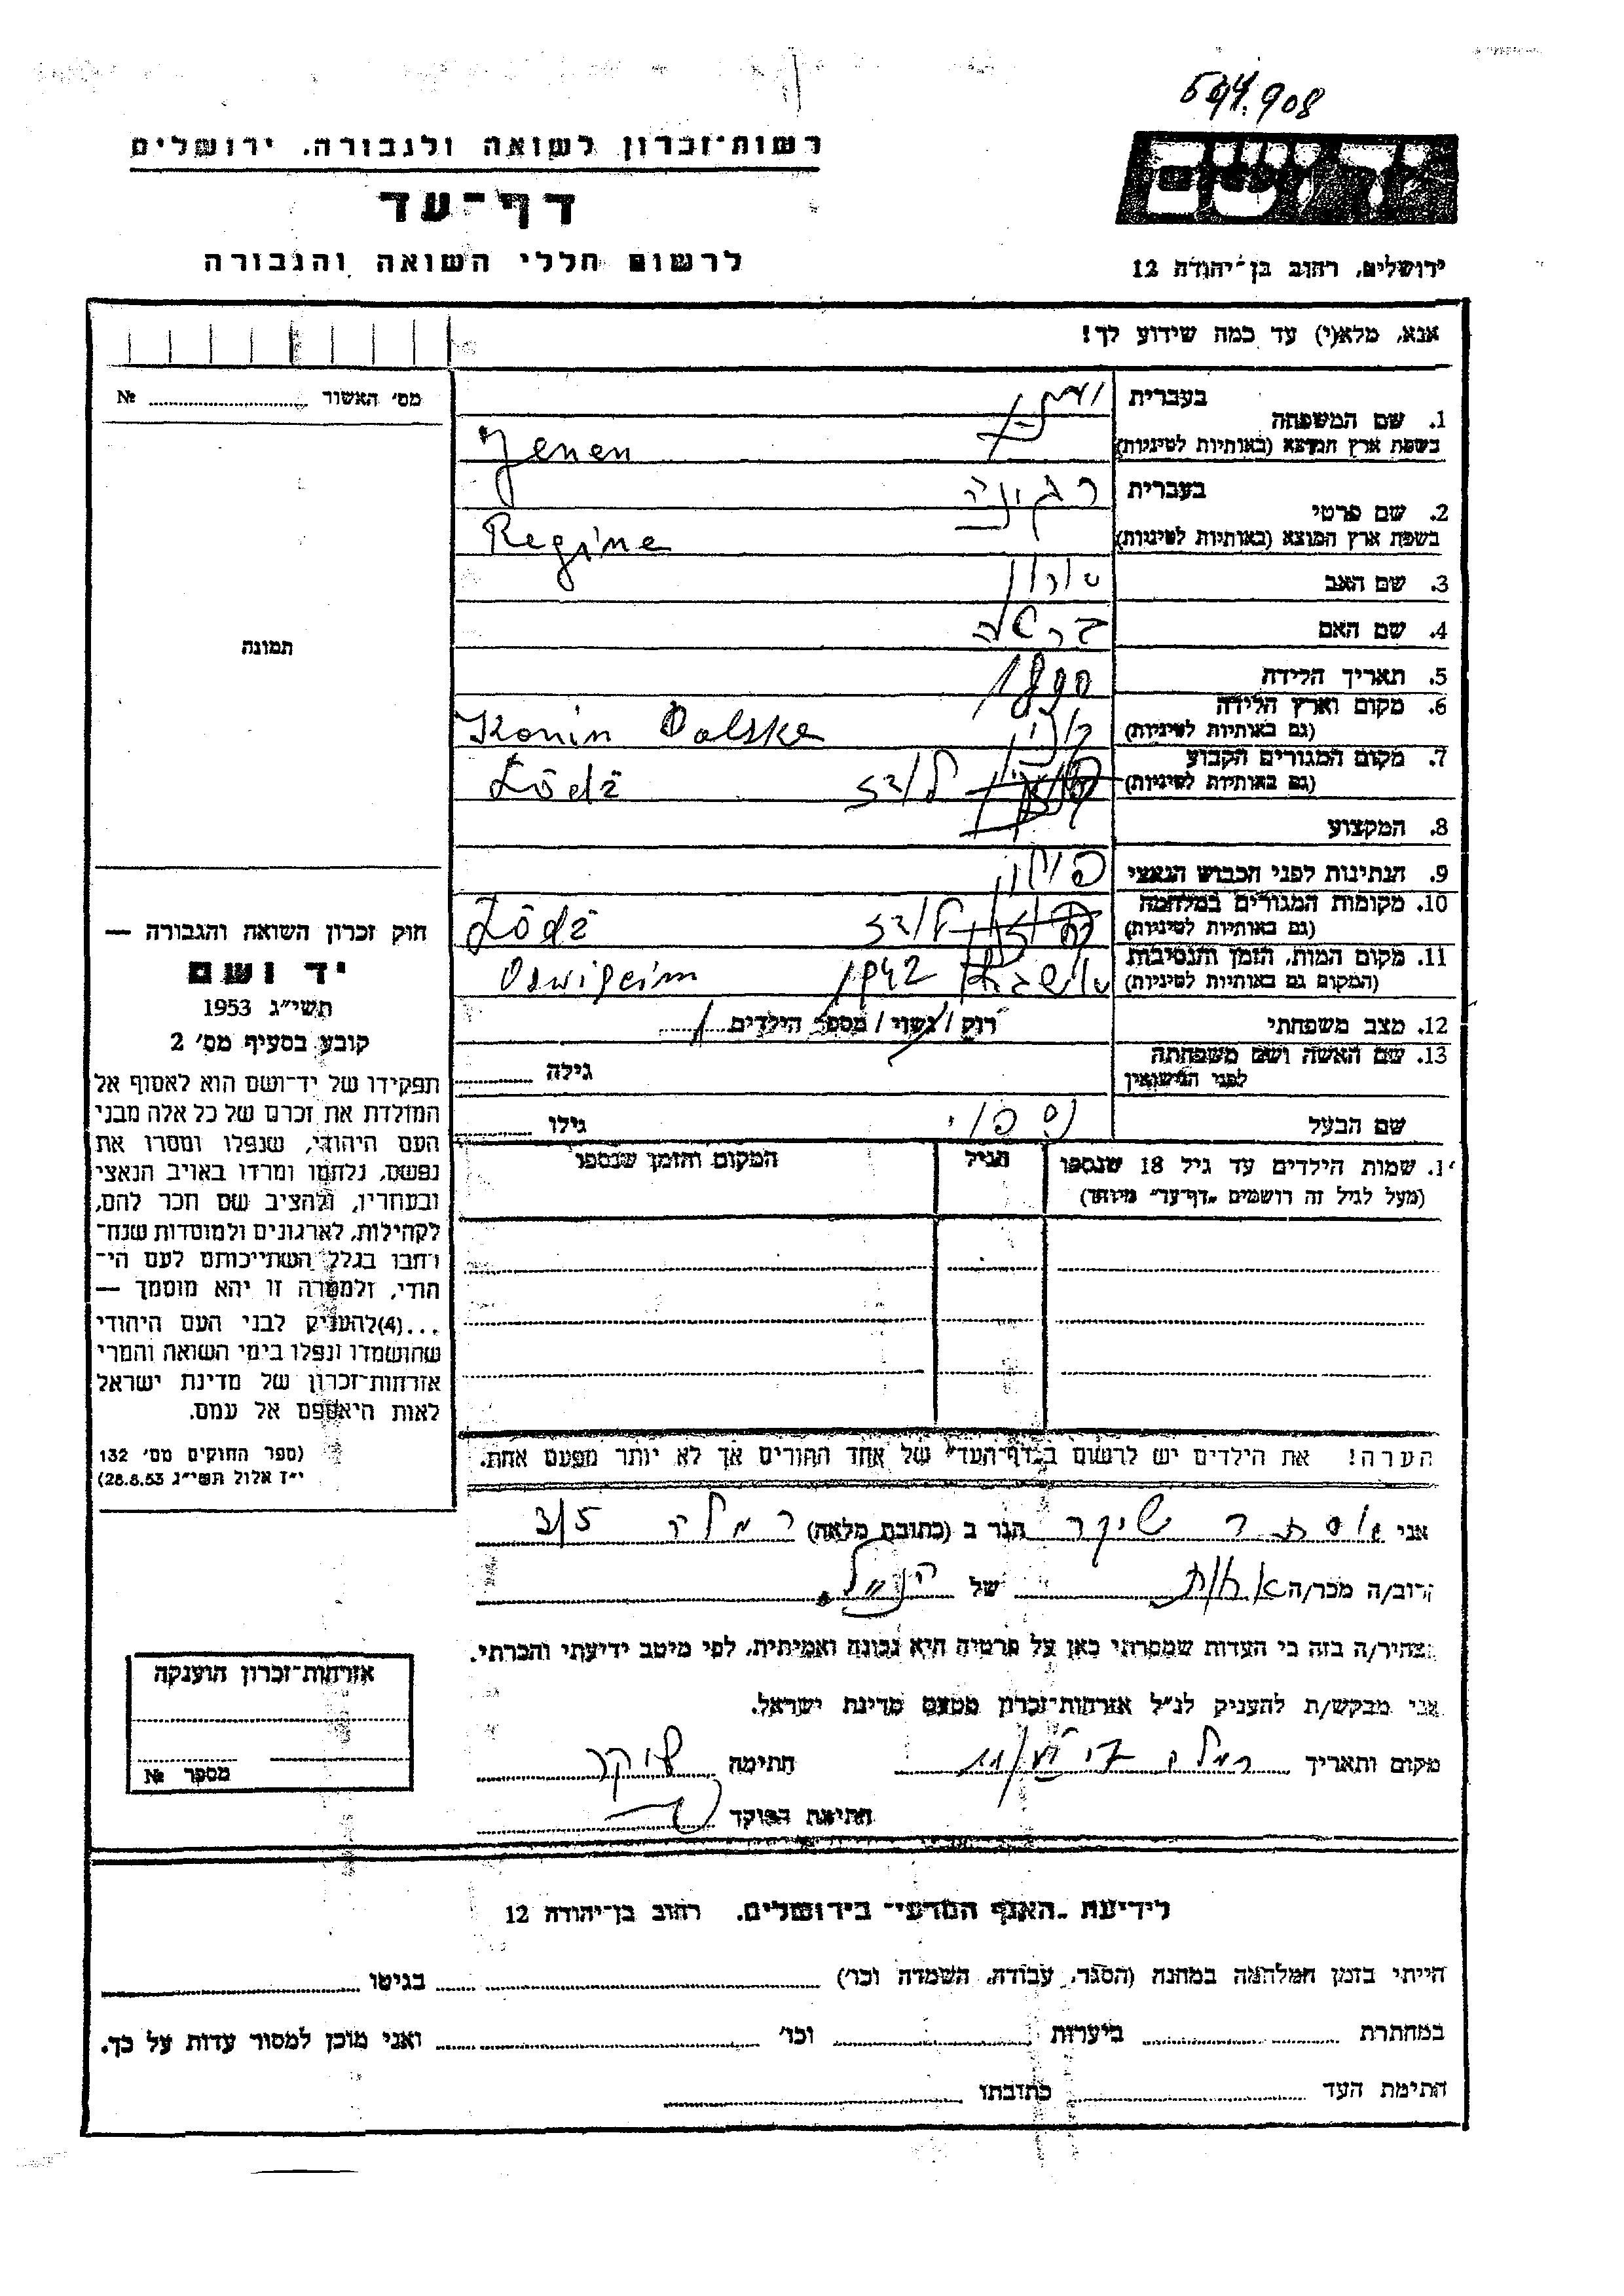 רשות־זכרון לשואה ולגבורה, ירושלים
דף־עד
לרשום חללי השואה והגבורה
יד ושם
ירושלים, רחוב בן־יהודה 12
אנא, מלא(י) עד כמה שידוע לך!
מס׳ האשור №
תמונה
חוק זכרון השואה והגבורה —
יד ושם
תשי״ג 1953
קובע בסעיף מס׳ 2
תפקידו של יד־ושם הוא לאסוף אל
המולדת את זכרם של כל אלה מבני
העם היהודי, שנפלו ומסרו את
נפשם, נלחמו ומרדו באויב הנאצי
ובעוזריו, ולהציב שם וזכר להם,
לקהילות, לארגונים ולמוסדות שנח־
רבו בגלל השתייכותם לעם הי־
הודי, ולמטרה זו יהא מוסמך —
...(4)להעניק לבני העם היהודי
שהושמדו ונפלו בימי השואה והמרי
אזרחות־זכרון של מדינת ישראל
לאות היאספם אל עמם.
(ספר החוקים מס׳ 132
י״ז אלול תשי״ג 28.8.53)
1. שם המשפחה בעברית
בשפת ארץ המוצא (באותיות לטיניות) Jenen
2. שם פרטי בעברית רגינה
בשפת ארץ המוצא (באותיות לטיניות) Regine
3. שם האב אהרון
4. שם האם
5. תאריך הלידה 1890
6. מקום וארץ הלידה
(גם באותיות לטיניות) קונין Konin Polska
7. מקום המגורים הקבוע
(גם באותיות לטיניות) לודז Łódź
8. המקצוע
9. הנתינות לפני הכבוש הנאצי פולין
10. מקומות המגורים במלחמה
(גם באותיות לטיניות) לודז Łódź
11. מקום המות, הזמן והנסיבות
(המקום גם באותיות לטיניות) 1942
12. מצב משפחתי רוק / נשוי / מספר הילדים 1
13. שם האשה ושם משפחתה
לפני הנישואין גילה
שם הבעל גילו
שמות הילדים עד גיל 18 שנספו הגיל המקום והזמן שנספו
(מעל לגיל זה רושמים „דף־עד״ מיוחד)
הערה! את הילדים יש לרשום ב„דף־העד״ של אחד ההורים אך לא יותר מפעם אחת.
אני אסתר שיקר הגר ב (כתובת מלאה) רמלה 3/5
קרוב/ה מכר/ה אחות של הנ״ל.
מצהיר/ה בזה כי העדות שמסרתי כאן על פרטיה היא נכונה ואמיתית, לפי מיטב ידיעתי והכרתי.
אני מבקש/ת להעניק לנ״ל אזרחות־זכרון מטעם מדינת ישראל.
מקום ותאריך רמלה חתימה שיקר
חתימת הפוקד
אזרחות־זכרון הוענקה
מספר №
לידיעת „האגף המדעי״ בירושלים, רחוב בן־יהודה 12
הייתי בזמן המלחמה במחנה (הסגר, עבודה, השמדה וכו׳) בגיטו
במחתרת ביערות וכו׳ ואני מוכן למסור עדות על כך.
חתימת העד כתובתו